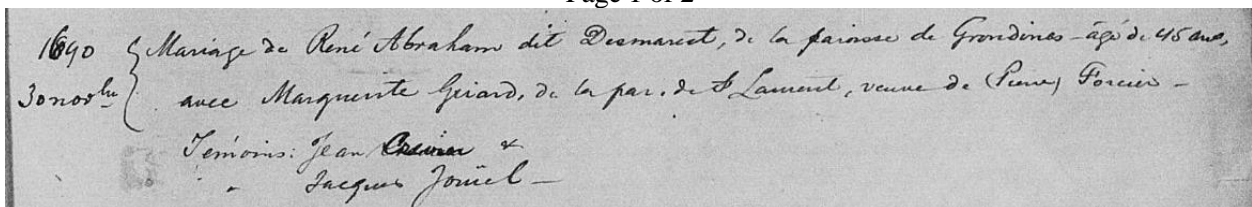 Page 1 of 2
1690 Mariage de René Abraham dit Desmarest, de la paroisse de Grondines - âgé de 45 ans,
30 novbre avec Marguerite Girard, de la par. de St Laurent, veuve de (Pierre) Forcier -
Témoins: Jean Crevier &
" Jacques Joüiel -